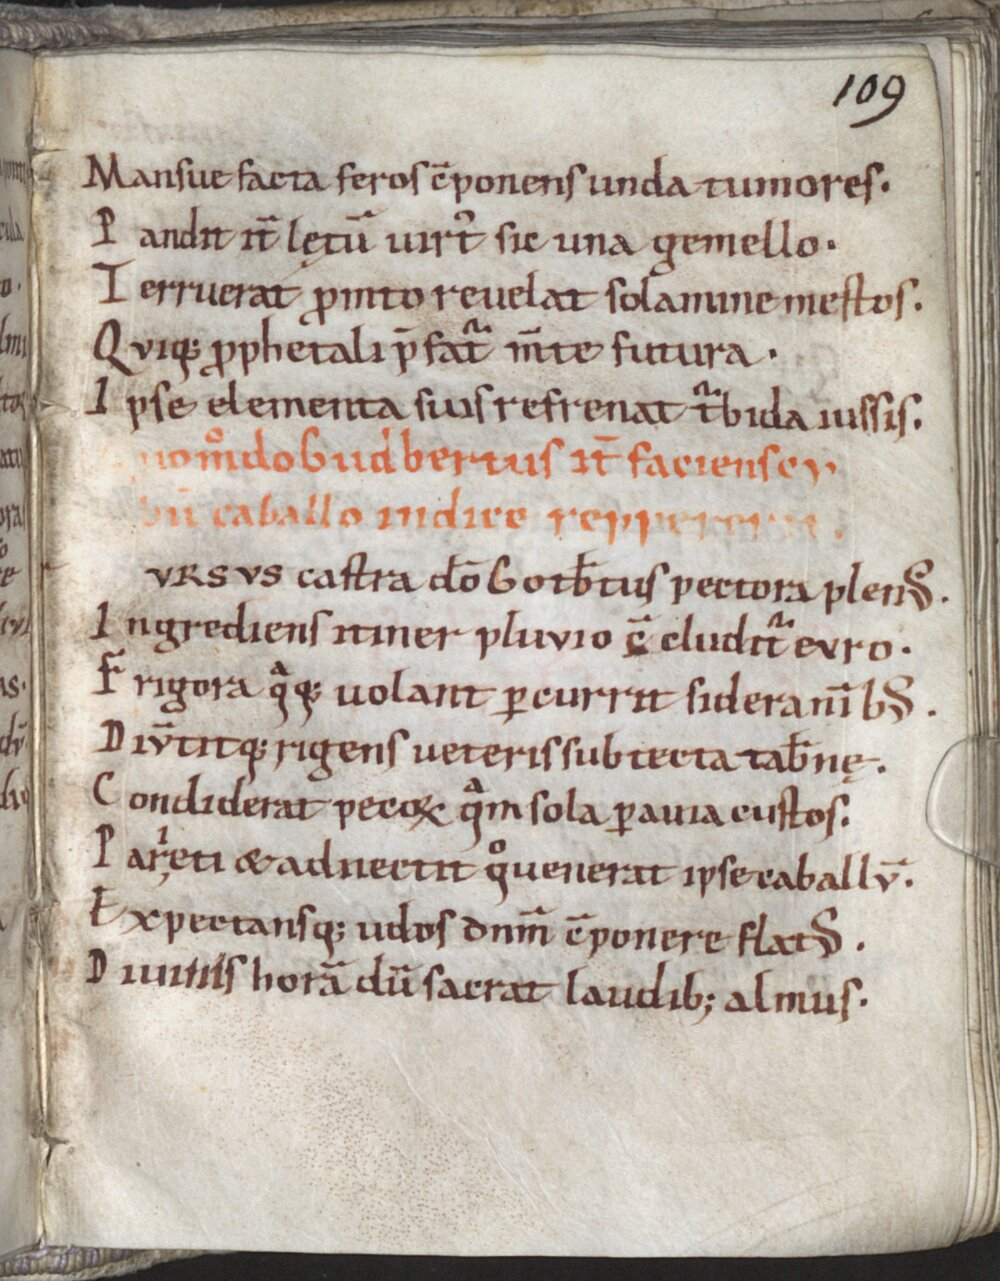 109
Mansue facta feros c̄ponens unda tumores.
Pandit it̄ lętū uirt᷒ sic una gemello.
Terruerat ꝓinto reuelat solamine mestos.
Quiq; ꝓphetali p̄fat᷑ m̄te futura.
Ipse elementa suis refrenat t᷑bida iussis.
uom̊do Gudbertus it̄ faciens cy
bū caballo indice reppererit.
VRSVS castra dō Gotb̄tus pectora plenꝰ.
Ingrediens itiner pluuio c̄ cludit᷑ euro.
Frigora q̄q; uolant ꝑcurrit sidera nībꝰ.
Diūtitq; rigens ueteris sub tecta tab̄nę.
Condiderat pecoꝝ qᷓm sola ꝑ auia custos.
Parⁱęti & adnectit qͦ uenerat ipse caballū.
Expectansq; udos dnm̄ c̄ponere flatꝰ.
Diuinis horā dū sacrat laudib; almus.